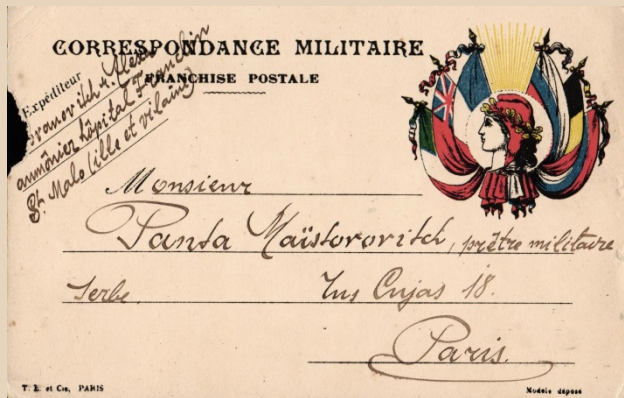 CORRESPONDANCE MILITAIRE
FRANCHISE POSTALE
Expéditeur
aumônier hôpital Franklin
St Malo (ille et vilaine)
Monsieur
Panta Maïstorovitch, prêtre militaire
Serbe, Cujas 18.
Paris.
T. L. et Cie, PARIS
Modèle déposé